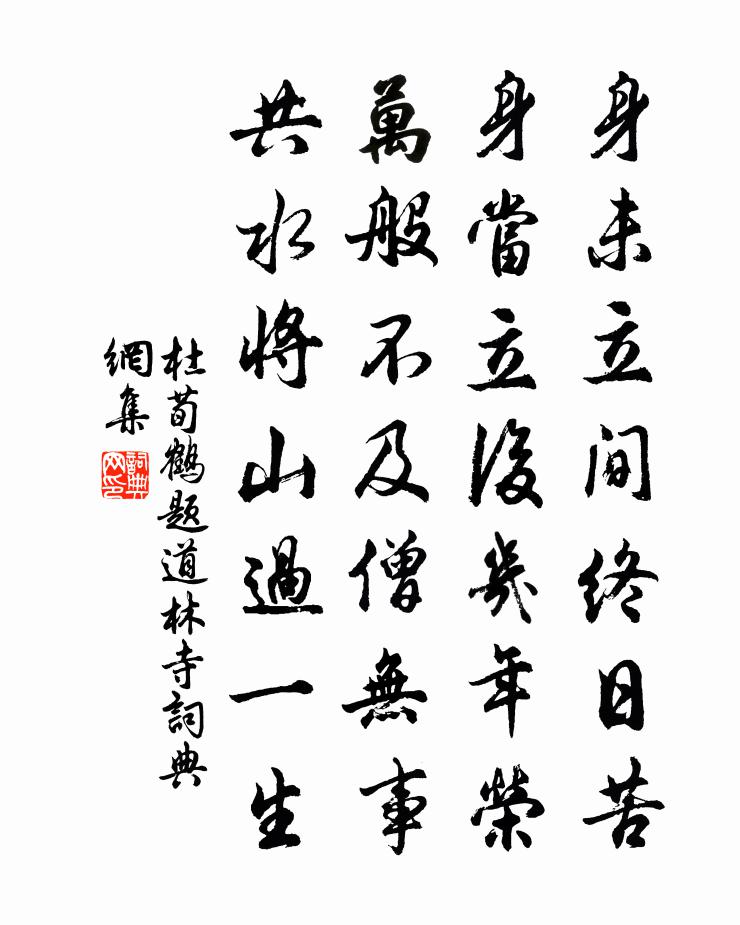 身未立間終日苦
身當立後幾年榮
萬般不及僧無事
共水將山過一生
杜荀鶴題道林寺詞典
網集
詞典
网印